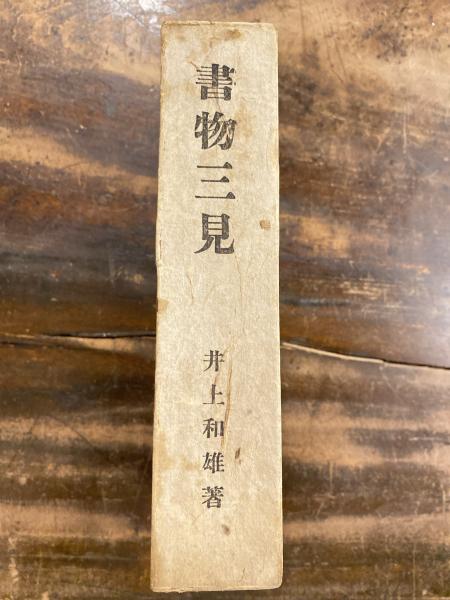 書物三見
井上和雄著